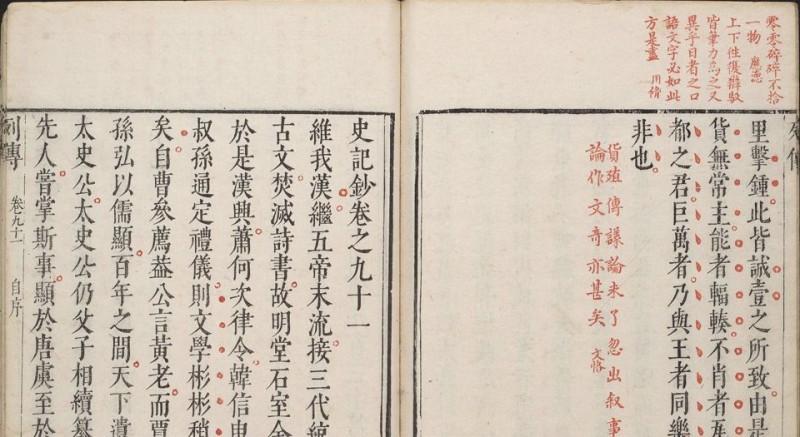 零零碎碎不拾
一物 應悳
上下往復辯駁
皆筆力為之又
異乎日者之口
語文字必如此
方是盡 用脩
里擊鍾此皆誠壹之所致由是
貨無常主能者輻輳不肖者瓦
都之君巨萬者乃與王者同樂
非也
貨殖傳議論未了忽出叙事
論作文奇亦甚矣 文恪
史記鈔卷之九十一
維我漢繼五帝末流接三代統
古文焚滅詩書故明堂石室金
於是漢興蕭何次律令韓信申
叔孫通定禮儀則文學彬彬稍
矣自曹參薦葢公言黃老而賈
孫弘以儒顯百年之間天下遺
太史公太史公仍父子相續纂
先人嘗掌斯事顯於唐虞至於
列傳 卷九十一 自序